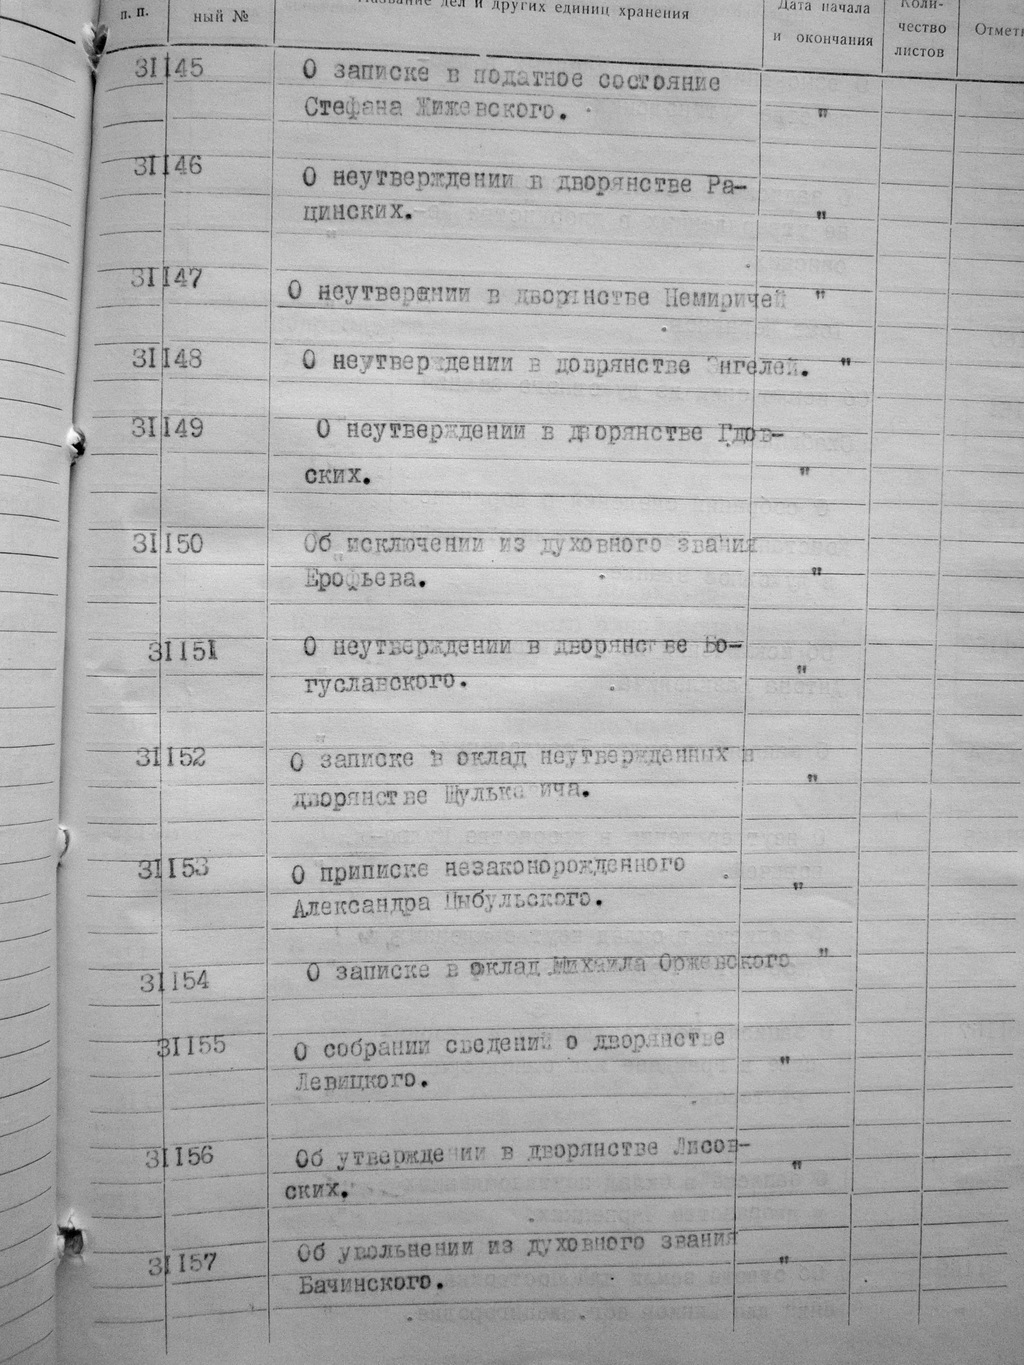 п. п.
ный №
Название дел и других единиц хранения
Дата начала
и окончания
Коли-
чество
листов
Отметк
31145
О записке в податное состояние
Стефана Жижевского.
"
31146
О неутверждении в дворянстве Ра-
цинских.
"
31147
О неутверднии в дворянстве Немиричей "
31148
О неутверждении в доврянстве Энгелей. "
31149
О неутверждении в дворянстве Гдов-
ских.
"
31150
Об исключении из духовного звания
Ерофьева.
"
31151
О неутверждении в дворянстве Бо-
гуславского.
"
31152
О записке в оклад неутвержденных в
дворянстве Шулькевича.
"
31153
О приписке незаконорожденного
Александра Цыбульского.
"
31154
О записке в оклад Михаила Оржевского "
31155
О собрании сведений о дворянстве
Левицкого.
"
31156
Об утверждении в дворянстве Лисов-
ских.
"
31157
Об увольнении из духовного звания
Бачинского.
"